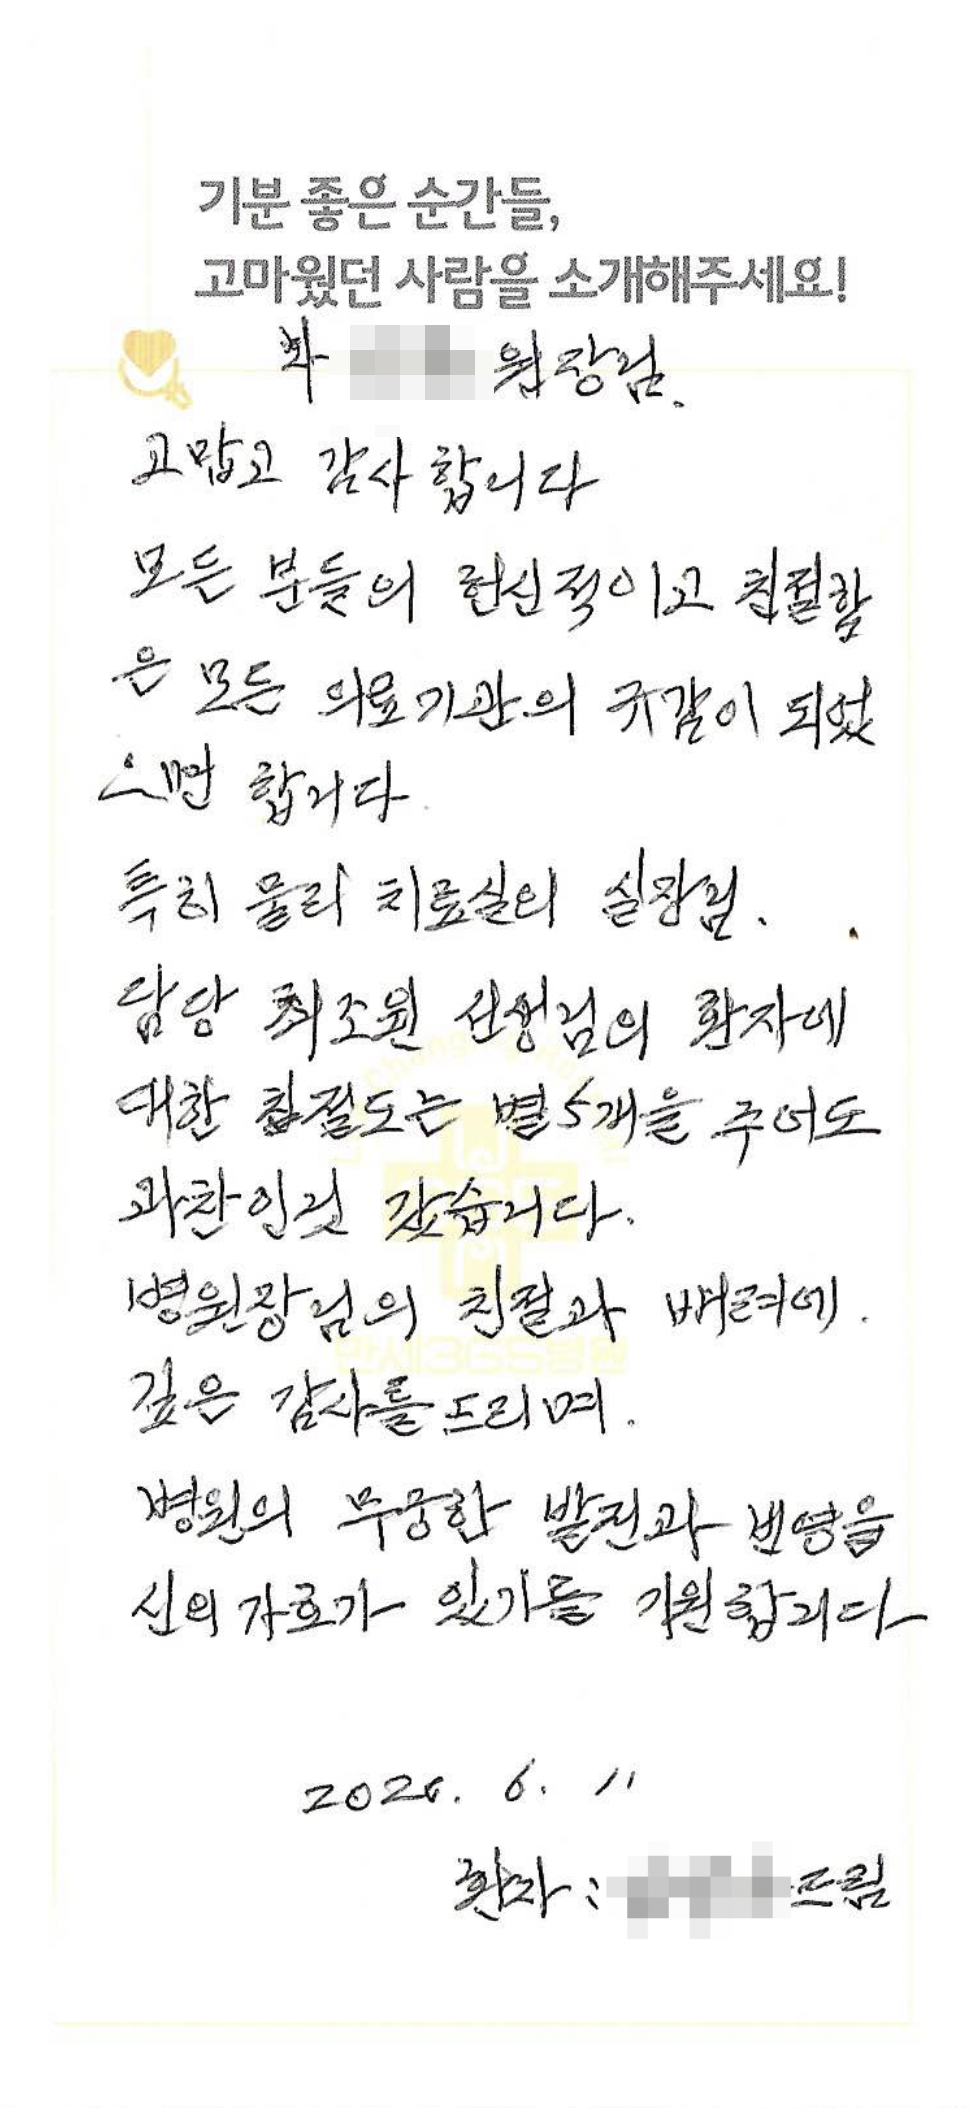 기분 좋은 순간들,
고마웠던 사람을 소개해주세요!
원장님.
고맙고 감사합니다
모든 분들의 헌신적이고 친절함
은 모든 의료기관의 귀감이 되었
으면 합니다.
특히 물리 치료실의 실장님.
담당 최조원 선생님의 환자에
대한 친절도는 별 5개을 주어도
과찬인것 같습니다.
병원장님의 친절과 배려에.
깊은 감사를 드리며.
병원의 무궁한 발전과 번영을
신의 가호가 있기를 기원합니다
6. 11
환자: 드림
만세365병원